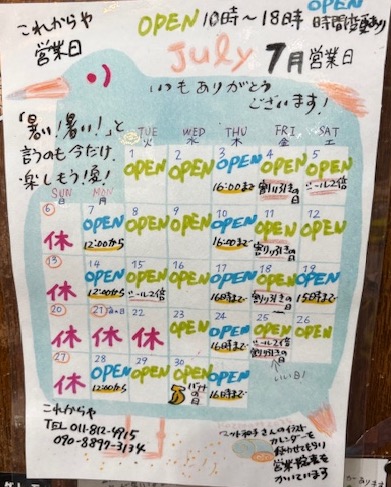 これからや
営業日
OPEN 10時～18時
OPEN
時間変更あり
July 7月営業日
いつもありがとう
ございます!
「暑い!暑い!」と
言うのも今だけ.
楽しもう!夏!
TUE WED THU FRI SAT
火 水 木 金 土
1 2 3 4 5
OPEN OPEN OPEN OPEN OPEN
16:00まで 割り引きの日 シール2倍
SUN MON
日 月
6 7 8 9 10 11 12
休 OPEN OPEN OPEN OPEN OPEN OPEN
12:00から 16:00まで 割り引きの日
13 14 15 16 17 18 19
休 OPEN OPEN OPEN OPEN OPEN OPEN
12:00から シール2倍 16時まで 割り引きの日 15時まで
20 21 海の日 22 23 24 25 26
休 休 休 OPEN OPEN OPEN OPEN
16時まで シール2倍 割り引きの日
27 28 29 30
休 OPEN OPEN OPEN OPEN
12:00から バナナの日 16時まで
いい日!
これからや
TEL 011-812-4915
090-8897-3134
さんのイラスト
カレンダーを
使わせてもらい
営業日を
かいています